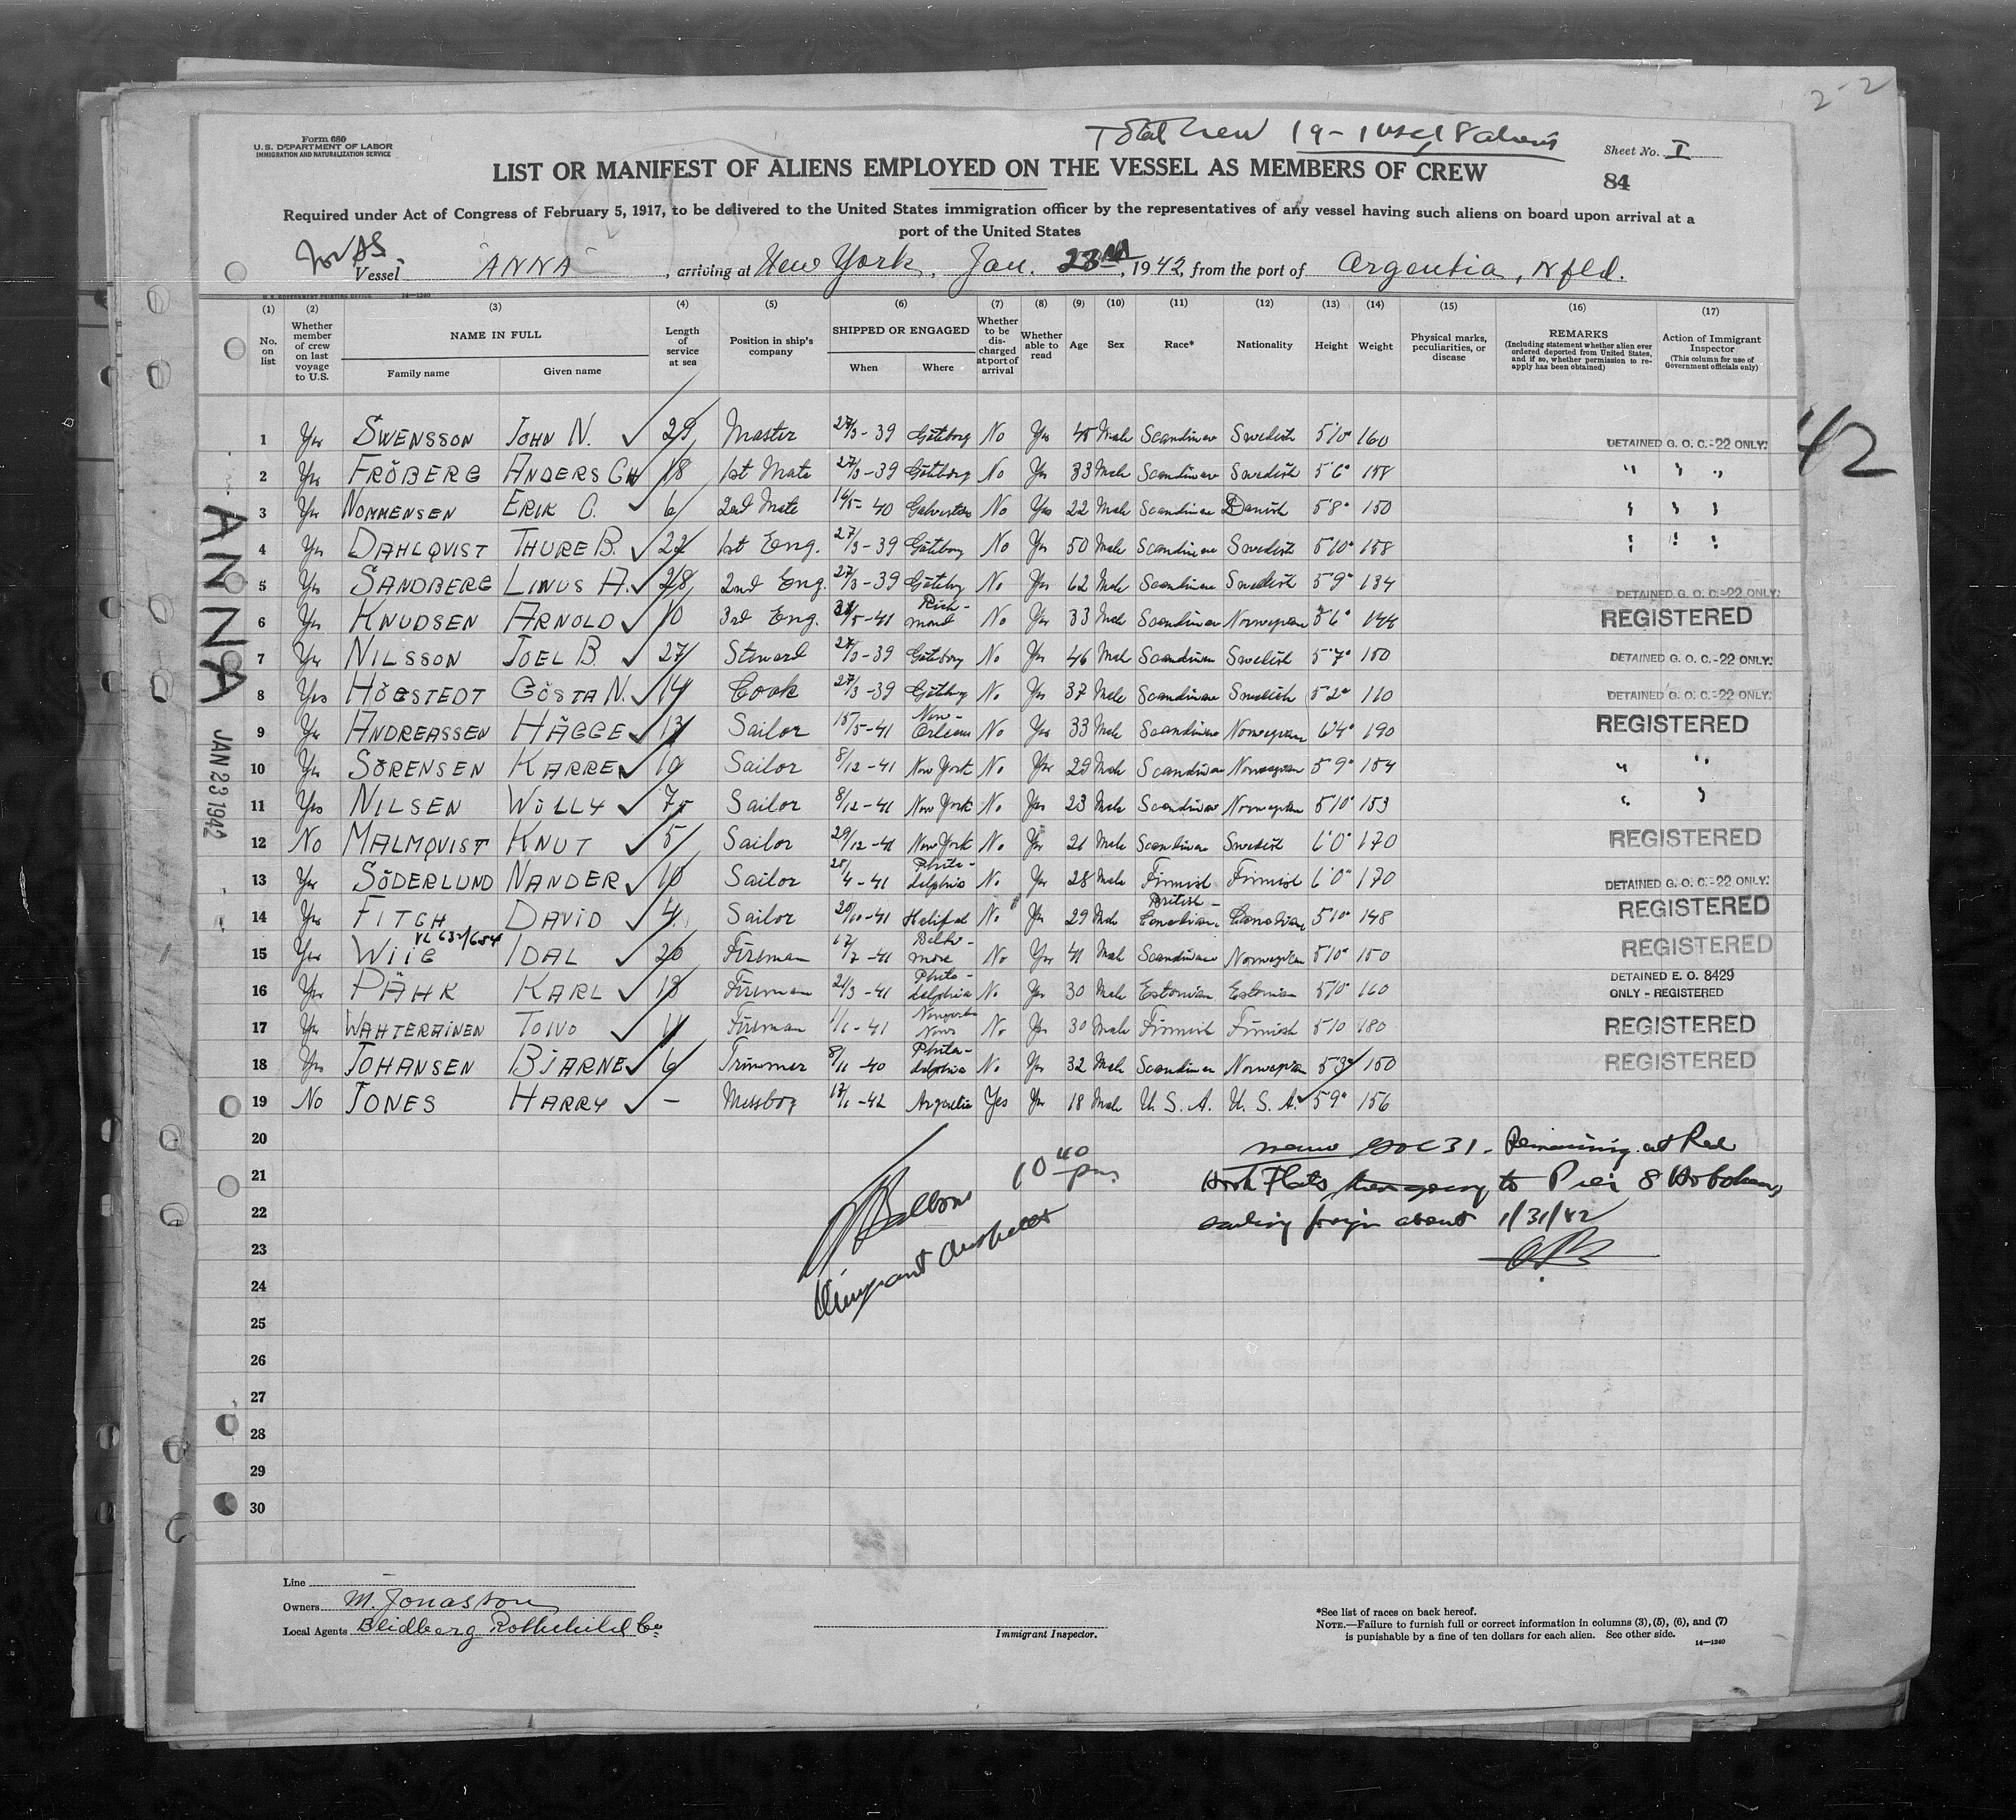 2-2
Form 680
U.S. DEPARTMENT OF LABOR
IMMIGRATION AND NATURALIZATION SERVICE
Total Crew 19 - 1 USC 18 aliens
Sheet No. I
84
LIST OR MANIFEST OF ALIENS EMPLOYED ON THE VESSEL AS MEMBERS OF CREW
Required under Act of Congress of February 5, 1917, to be delivered to the United States immigration officer by the representatives of any vessel having such aliens on board upon arrival at a
port of the United States
Vessel "ANNA", arriving at New York, Jan. 23rd, 1942, from the port of Argentia, Nfld.
U. S. GOVERNMENT PRINTING OFFICE 14-1240
(1) (2) (3) (4) (5) (6) (7) (8) (9) (10) (11) (12) (13) (14) (15) (16) (17)
No. on list
Whether member of crew on last voyage to U.S.
NAME IN FULL
Family name Given name
Length of service at sea
Position in ship's company
SHIPPED OR ENGAGED
When Where
Whether to be discharged at port of arrival
Whether able to read
Age Sex Race* Nationality Height Weight
Physical marks, peculiarities, or disease
REMARKS
(Including statement whether alien ever ordered deported from United States, and if so, whether permission to reapply has been obtained)
Action of Immigrant Inspector
(This column for use of Government officials only)
1 Yes SWENSSON JOHN N. 29 Master 27/3-39 Göteborg No Yes 45 Male Scandinav Swedish 5'10" 160 DETAINED G. O. C.-22 ONLY.
2 Yes FRÖBERG ANDERS CH 18 1st Mate 27/3-39 Göteborg No Yes 33 Male Scandinav Swedish 5'6" 158 " " "
3 Yes NOMMENSEN ERIK C. 6 2nd Mate 16/5-40 Galveston No Yes 22 Male Scandinav Danish 5'8" 150 " " "
4 Yes DAHLQVIST THURE B. 22 1st Eng. 27/3-39 Göteborg No Yes 50 Male Scandinav Swedish 5'10" 158 " " "
5 Yes SANDBERG LINUS A. 28 2nd Eng. 27/3-39 Göteborg No Yes 62 Male Scandinav Swedish 5'9" 134 DETAINED G. O. C.-22 ONLY.
6 Yes KNUDSEN ARNOLD 10 3rd Eng. 31/5-41 Rich-mond No Yes 33 Male Scandinav Norwegian 5'6" 144 REGISTERED
7 Yes NILSSON JOEL B. 27 Steward 27/3-39 Göteborg No Yes 46 Male Scandinav Swedish 5'7" 150 DETAINED G. O. C.-22 ONLY.
8 Yes HÖGSTEDT GÖSTA N. 14 Cook 27/3-39 Göteborg No Yes 37 Male Scandinav Swedish 5'2" 110 DETAINED G. O. C.-22 ONLY.
9 Yes ANDREASSEN HÄGGE 17 Sailor 15/5-41 New-Orleans No Yes 33 Male Scandinav Norwegian 6'4" 190 REGISTERED
10 Yes SÖRENSEN KARRE 19 Sailor 8/12-41 New York No Yes 29 Male Scandinav Norwegian 5'9" 154 " "
11 Yes NILSEN WILLY 7 Sailor 8/12-41 New York No Yes 23 Male Scandinav Norwegian 5'10" 153 " "
12 No MALMQVIST KNUT 5 Sailor 29/12-41 New York No Yes 21 Male Scandinav Swedish 6'0" 170 REGISTERED
13 Yes SÖDERLUND NANDER 10 Sailor 28/4-41 Phila-delphia No Yes 28 Male Finnish Finnish 6'0" 170 DETAINED G. O. C.-22 ONLY.
14 Yes FITCH DAVID 4 Sailor 20/10-41 Halifax No Yes 29 Male British-Canadian Canadian 5'10" 148 REGISTERED
15 Yes WIIG IDAL 20 Fireman 17/7-41 Balti-more No Yes 41 Male Scandinav Norwegian 5'10" 150 REGISTERED
16 Yes PÄHK KARL 13 Fireman 21/3-41 Phila-delphia No Yes 30 Male Estonian Estonian 5'10" 160 DETAINED E. O. 8429 ONLY - REGISTERED
17 Yes WAHTERAINEN TOIVO 11 Fireman 1/1-41 News No Yes 30 Male Finnish Finnish 5'10 180 REGISTERED
18 Yes JOHANSEN BJARNE 6 Trimmer 8/11-40 Phila-delphia No Yes 32 Male Scandinav Norwegian 5'3" 150 REGISTERED
19 No JONES HARRY - Messboy 17/1-42 Argentia Yes Yes 18 Male U. S. A. U. S. A. 5'9" 156
20
21
22
23
24
25
26
27
28
29
30
42
ANNA
JAN 23 1942
10 40 pm
Immigrant Inspector
memo GOC 31. Remaining at Red
Hook Flats then going to Pier 8 Hoboken,
sailing foreign about 1/31/42
Line
Owners M. Jonasson
Local Agents Beidberg Rothchild Co.
Immigrant Inspector.
*See list of races on back hereof.
NOTE.—Failure to furnish full or correct information in columns (3), (5), (6), and (7)
is punishable by a fine of ten dollars for each alien. See other side.
14—1240